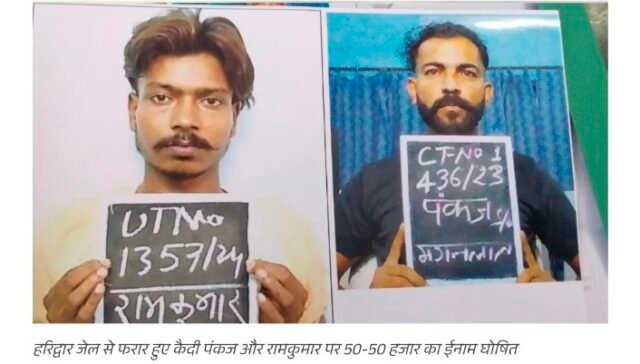 UTNo
1357/24
रामकुमार
CT-NO 1
436/23
पंकज S/o
मगनलाल
हरिद्वार जेल से फरार हुए कैदी पंकज और रामकुमार पर 50-50 हजार का ईनाम घोषित